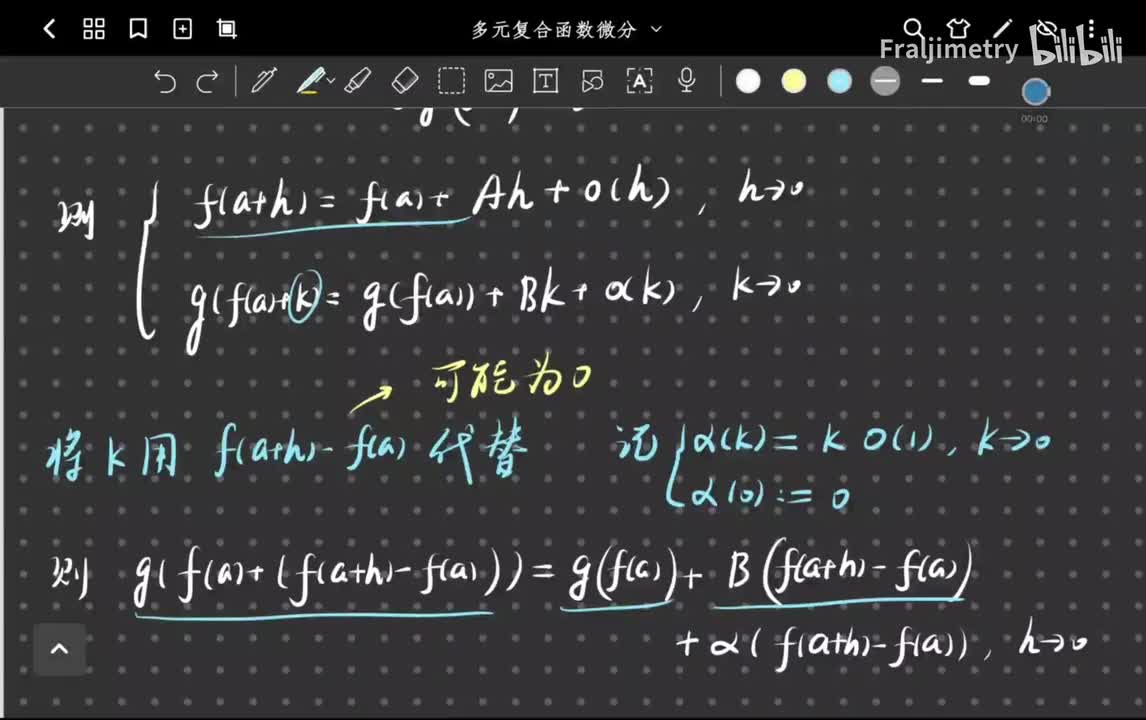 多元复合函数微分
Fraljimetry bilibili
00:00
则 { f(a+h) = f(a) + Ah + o(h), h→0
g(f(a)+k) = g(f(a)) + Bk + α(k), k→0
可能为0
将 k 用 f(a+h) - f(a) 代替 记 { α(k) = k o(1), k→0
α(0) := 0
则 g(f(a) + (f(a+h) - f(a))) = g(f(a)) + B(f(a+h) - f(a))
+ α(f(a+h) - f(a)), h→0